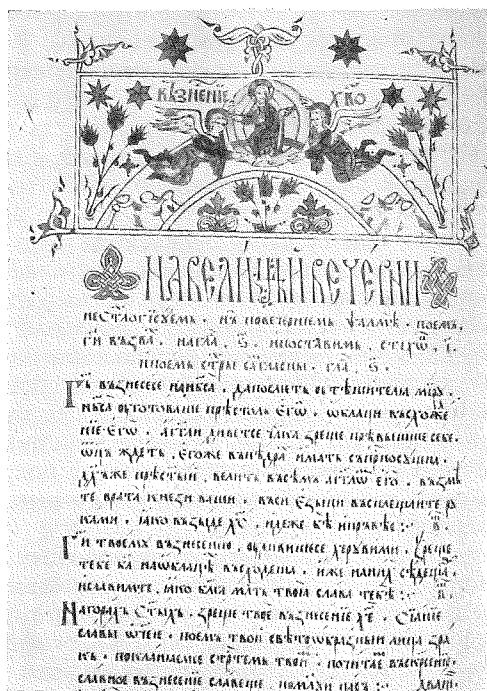 възнесенїе хво
на велицѣй вечерни
не стїлогїсꙋемъ . нъ повечернїемъ ѱалмѣ . поемъ ,
г҃и възва . на гла , ѕ . и поставим , стїхѡ , і .
и поемъ стры съгласны . гла , ѕ .
Г҃ь възнесесе на нб҃са , да послеть оутѣшителꙗ мирꙋ
нб҃са оуготоваше прѣстоль его , ѡблаци въсхожде
нїе его . агг҃ли диветсе чл҃ка зреще прѣвышше себе .
ѡ҃ць ждеть , егоже въ нѣдра имать съприсносꙋщна .
дх҃ъ же прѣстыи , велить въсѣмь агг҃лѡ его . възмѣ
те врата кнези ваши . въси езыци въсплещаите рꙋ
ками . ꙗко възыде х҃с , идеже бѣ и прьвѣе :
Г҃и твоемꙋ възнесенїю , оудивишесе херꙋвими . зреще
тебе б҃а на ѡблацѣ въсходеща . иже на них седеща .
и славимте , ꙗко бл҃га млть твоꙗ слава тебѣ :
На горахъ стыхъ . зреще твое възнесенїе х҃е . сїанїе
славы ѡчее . поемъ твои свѣтоѡбразныи лица зра
къ . покланꙗемсе стртемь твои . почитае въскрнїе .
славное възнесенїе славеще . помлꙋи нас :